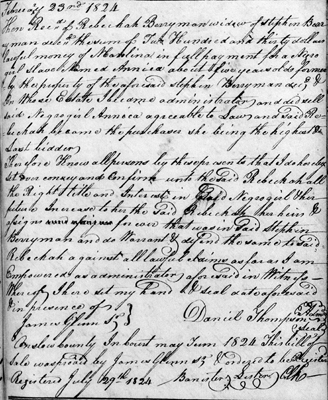 January 23rd 1824
Then Recd of Rebeckah Berryman widow of Stephen Ber
ryman decd the sum of Two Hundred and thirty dollars
lawful money of N Carolina in full payment for a Negro
girl Slave named Annica about two years old formerly
the property of the aforesaid Stephen Berryman decd &
In whose Estate I became administrator and did sell
said Negro girl Annica agreeable to Law and said Re-
beckah became the purchaser she being the highest &
Last bidder
Therefore Know all persons by these presents that I do hereby
set over convey and Confirm unto the said Rebeckah all
the Right title and Interest in said Negro girl & her
future Increase to her the said Rebeckah her heirs &
assigns for ever that was in said Stephen
Berryman and do Warrant & defend the same to said
Rebeckah against all lawful claims as far as I am
Empowered as administrator aforesaid in Witness
Whereof I here set my hand & seal date aforesaid
in presence of
James Glenn Sr Daniel Thompson Admr seal
Onslow County In Court may Term 1824 This bill of
Sale was proved by James Glenn Sr & ordered to be Registered
Registered July 29th 1824 Banister Lester Clk